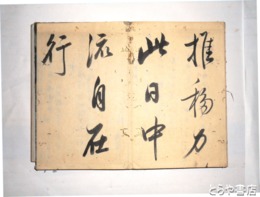 推移力
此日中
流自在
行
とらや書店